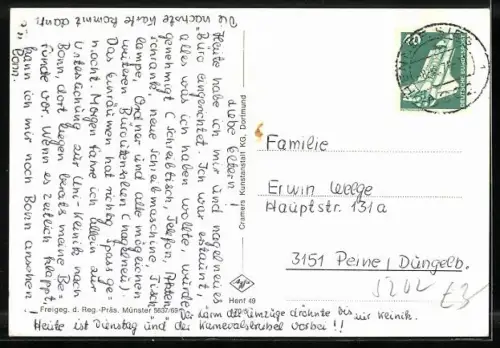 Liebe Eltern!
Heute habe ich mir und nagelneues
Büro eingerichtet. Ich war erstaunt,
alles was ich haben wollte, wurde
genehmigt (Schreibtisch, Telefon, Akten-
schrank, neue Schreibmaschine, Tisch-
lampe, Ordner und alle möglichen
weiteren Büroutensilien (nagelneu).
Das Einräumen hat richtig Spass ge-
macht. Morgen fahre ich allein zur
Untersuchung zur Uni-Klinik nach
Bonn, dort liegen bereits meine Be-
funde vor. Wenn es zeitlich klappt,
kann ich mir noch Bonn ansehen!
Die nächste Karte kommt dann
in Bonn.
Heute ist Dienstag und der Karnevalstrubel vorbei!!
Der Lärm der Umzüge dröhnte bis zur Klinik.
Cramers Kunstanstalt KG, Dortmund
Henf 49
Freigeg. d. Reg.-Präs. Münster 5637/69
Familie
Erwin Welge
Hauptstr. 131a
3151 Peine/Düngelb.
5202
£3